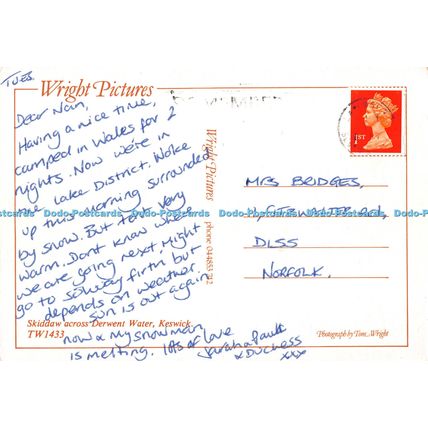 TUES.
Wright Pictures
Dear Nain,
Having a nice time,
camped in Wales for 2
nights. Now we're in
the Lake District. Woke
up this morning surrounded
by snow. But tent very
warm. Dont know where
we are going next. Might
go to Solway firth but
depends on weather.
Sun is out again
now & my snowman
is melting. lots of love
Sarah & Paul
x Duchess
xxx
Skiddaw across Derwent Water, Keswick.
TW1433
Wright Pictures
phone
1ST
MRS BRIDGES,
DISS
NORFOLK.
Photograph by Tom Wright
Dodo-Postcards Dodo-Postcards Dodo-Postcards Dodo-Postcards Dodo-Postcards